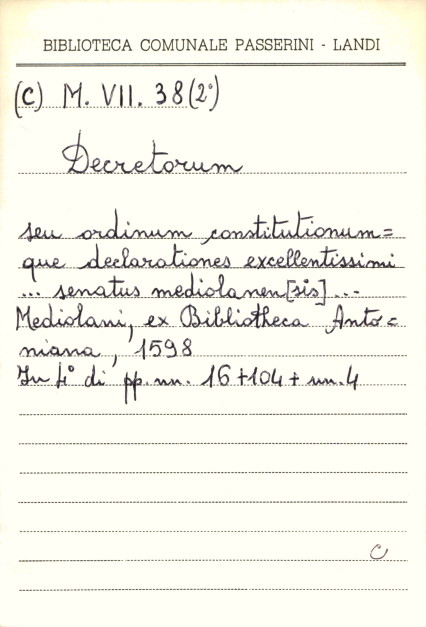 BIBLIOTECA COMUNALE PASSERINI - LANDI
(C) M. VII. 38 (2°)
Decretorum
seu ordinum constitutionum=
que declarationes excellentissimi
... senatus mediolanen[sis] ...
Mediolani, ex Bibliotheca Anto=
niana, 1598
In 4° di pp. nn. 16+104+nn. 4
C